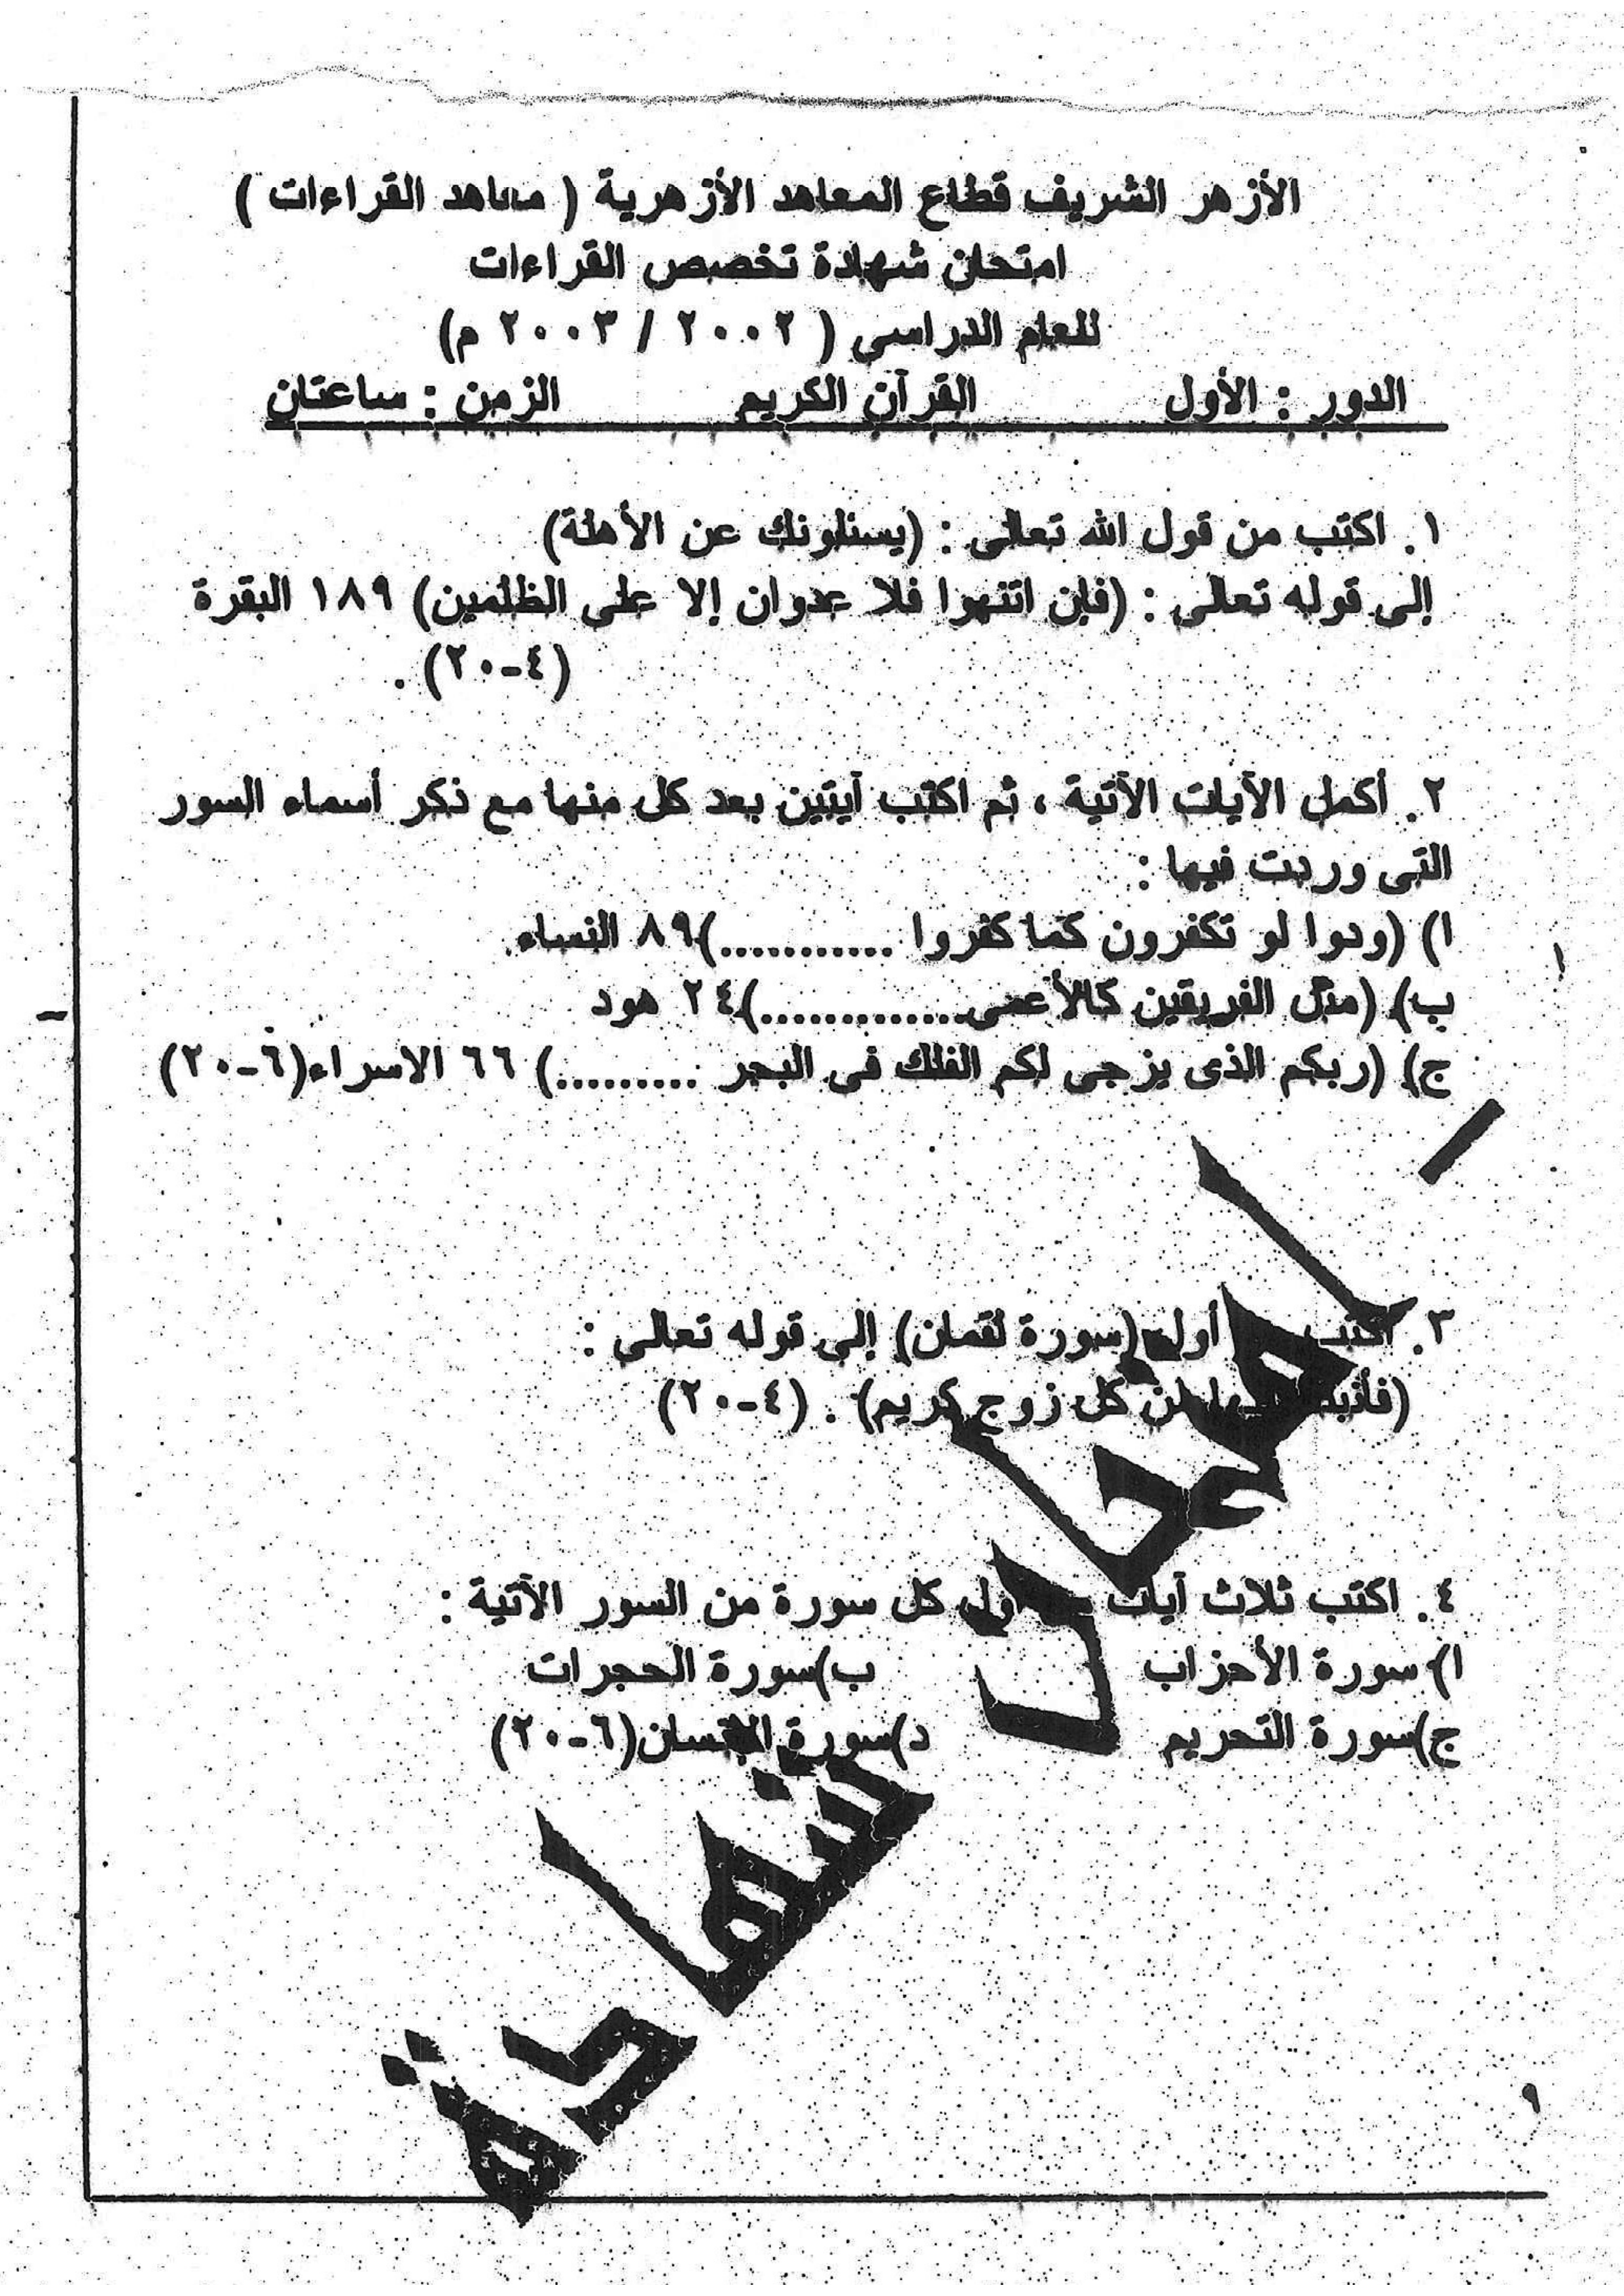 الأزهر الشريف قطاع المعاهد الأزهرية ( معاهد القراءات )
امتحان شهادة تخصص القراءات
للعام الدراسى ( ٢٠٠٢ / ٢٠٠٣ م)
الدور : الأول القرآن الكريم الزمن : ساعتان
١. اكتب من قول الله تعالى : (يسئلونك عن الأهلة)
إلى قوله تعالى : (فإن انتهوا فلا عدوان إلا على الظلمين) ١٨٩ البقرة
(٤-٢٠) .
٢. أكمل الآيات الآتية ، ثم اكتب آيتين بعد كل منها مع ذكر أسماء السور
التى وردت فيها :
ا) (ودوا لو تكفرون كما كفروا ...........)٨٩ النساء
ب) (مثل الفريقين كالأعمى.............)٢٤ هود
ج) (ربكم الذى يزجى لكم الفلك فى البحر .........) ٦٦ الاسراء(٦-٢٠)
٣. اكتب أول (سورة لقمان) إلى قوله تعالى :
من كل زوج كريم) . (٤-٢٠)
٤. اكتب ثلاث آيات أول كل سورة من السور الآتية :
ا) سورة الأحزاب ب)سورة الحجرات
ج)سورة التحريم د)سورة الإنسان(٦-٢٠)
امتحان شهادة
٩